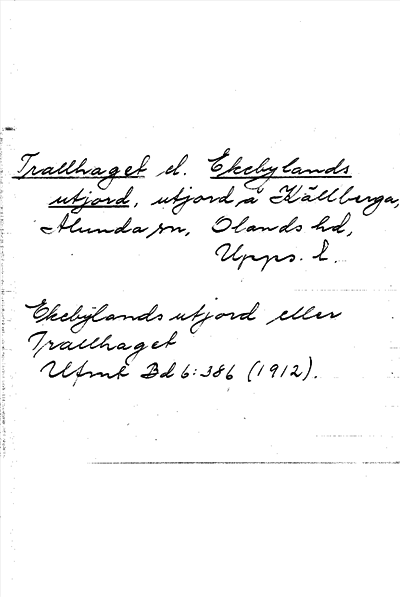 Trallhaget el. Ekebylands
utjord, utjord å Källberga,
Alunda sn, Olands hd,
Upps. l.
Ekebylands utjord eller
Trallhaget
Ufmt Bd 6:386 (1912).